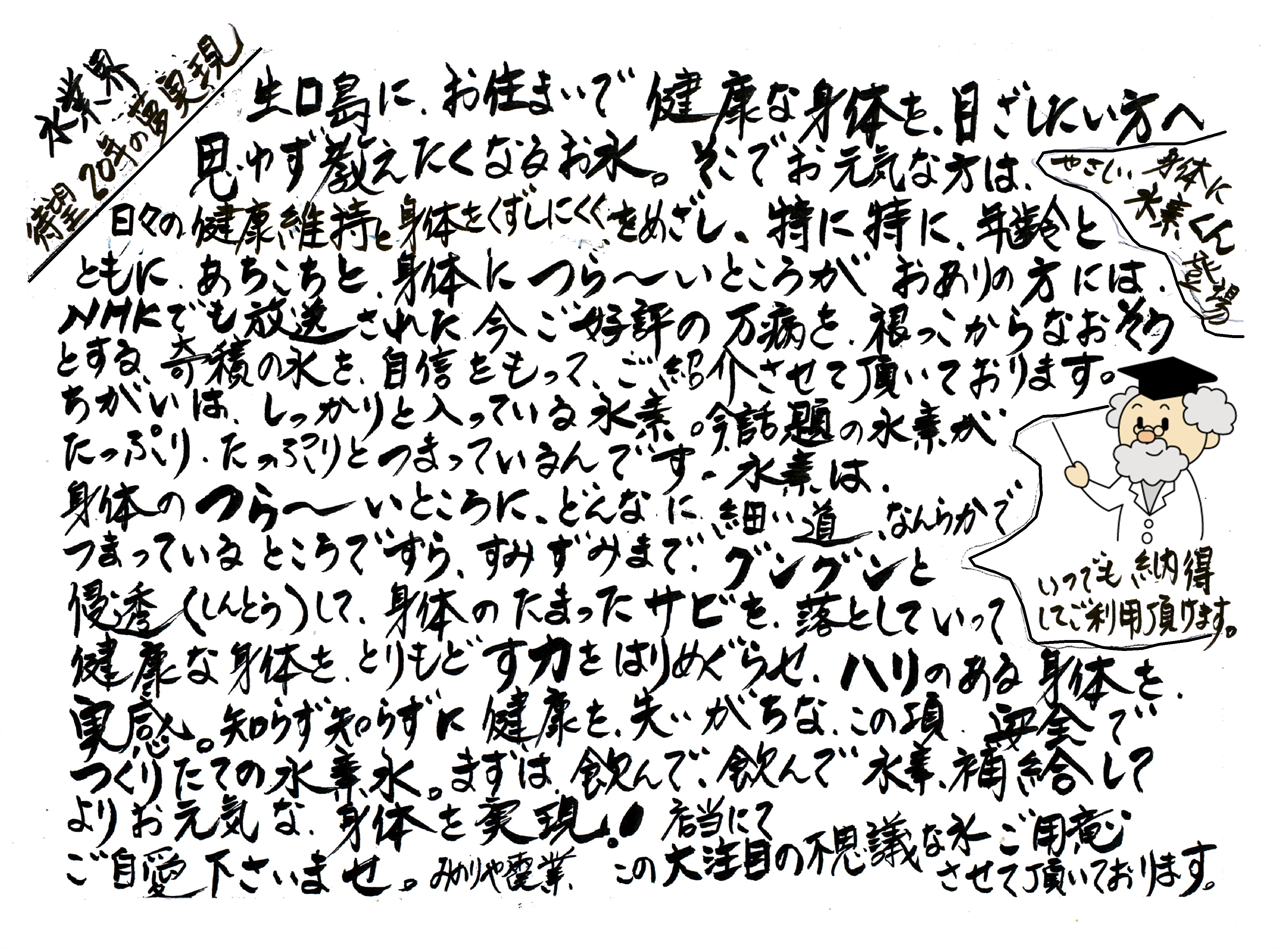 水業界
待望 20年の夢実現
生口島に、お住まいで 健康な身体を、目ざしたい方へ
思わず教えたくなるお水。そこでお元気な方は、
日々の健康維持と身体をくずしにくくをめざし、特に特に、年齢と
ともに、あちこちと、身体に つら〜いところが おありの方には、
NHKでも放送された今ご好評の万病を、根っこからなおそう
とする、奇積の水を、自信をもって、ご紹介させて頂いております。
ちがいは、しっかりと入っている水素。今話題の水素が
たっぷり、たっぷりとつまっているんです。水素は、
身体の つら〜いところに、どんなに 細い道、なんらかで
つまっているところですら、すみずみまで、グングンと
優透(しんとう)して、身体のたまったサビを、落としていって
健康な身体を、とりもどす力をはりめぐらせ、ハリのある身体を、
実感。知らず知らずに健康を、失いがちな、この頃、安全で
つくりたての水素水。まずは、飲んで、飲んで水素、補給して
よりお元気な、身体を実現!!
ご自愛下さいませ。みのりや電業
店当にて
この大注目の不思議な水 ご用意
させて頂いております。
やさしい 身体に
水素くん
登場
いつでも納得
してご利用頂けます。